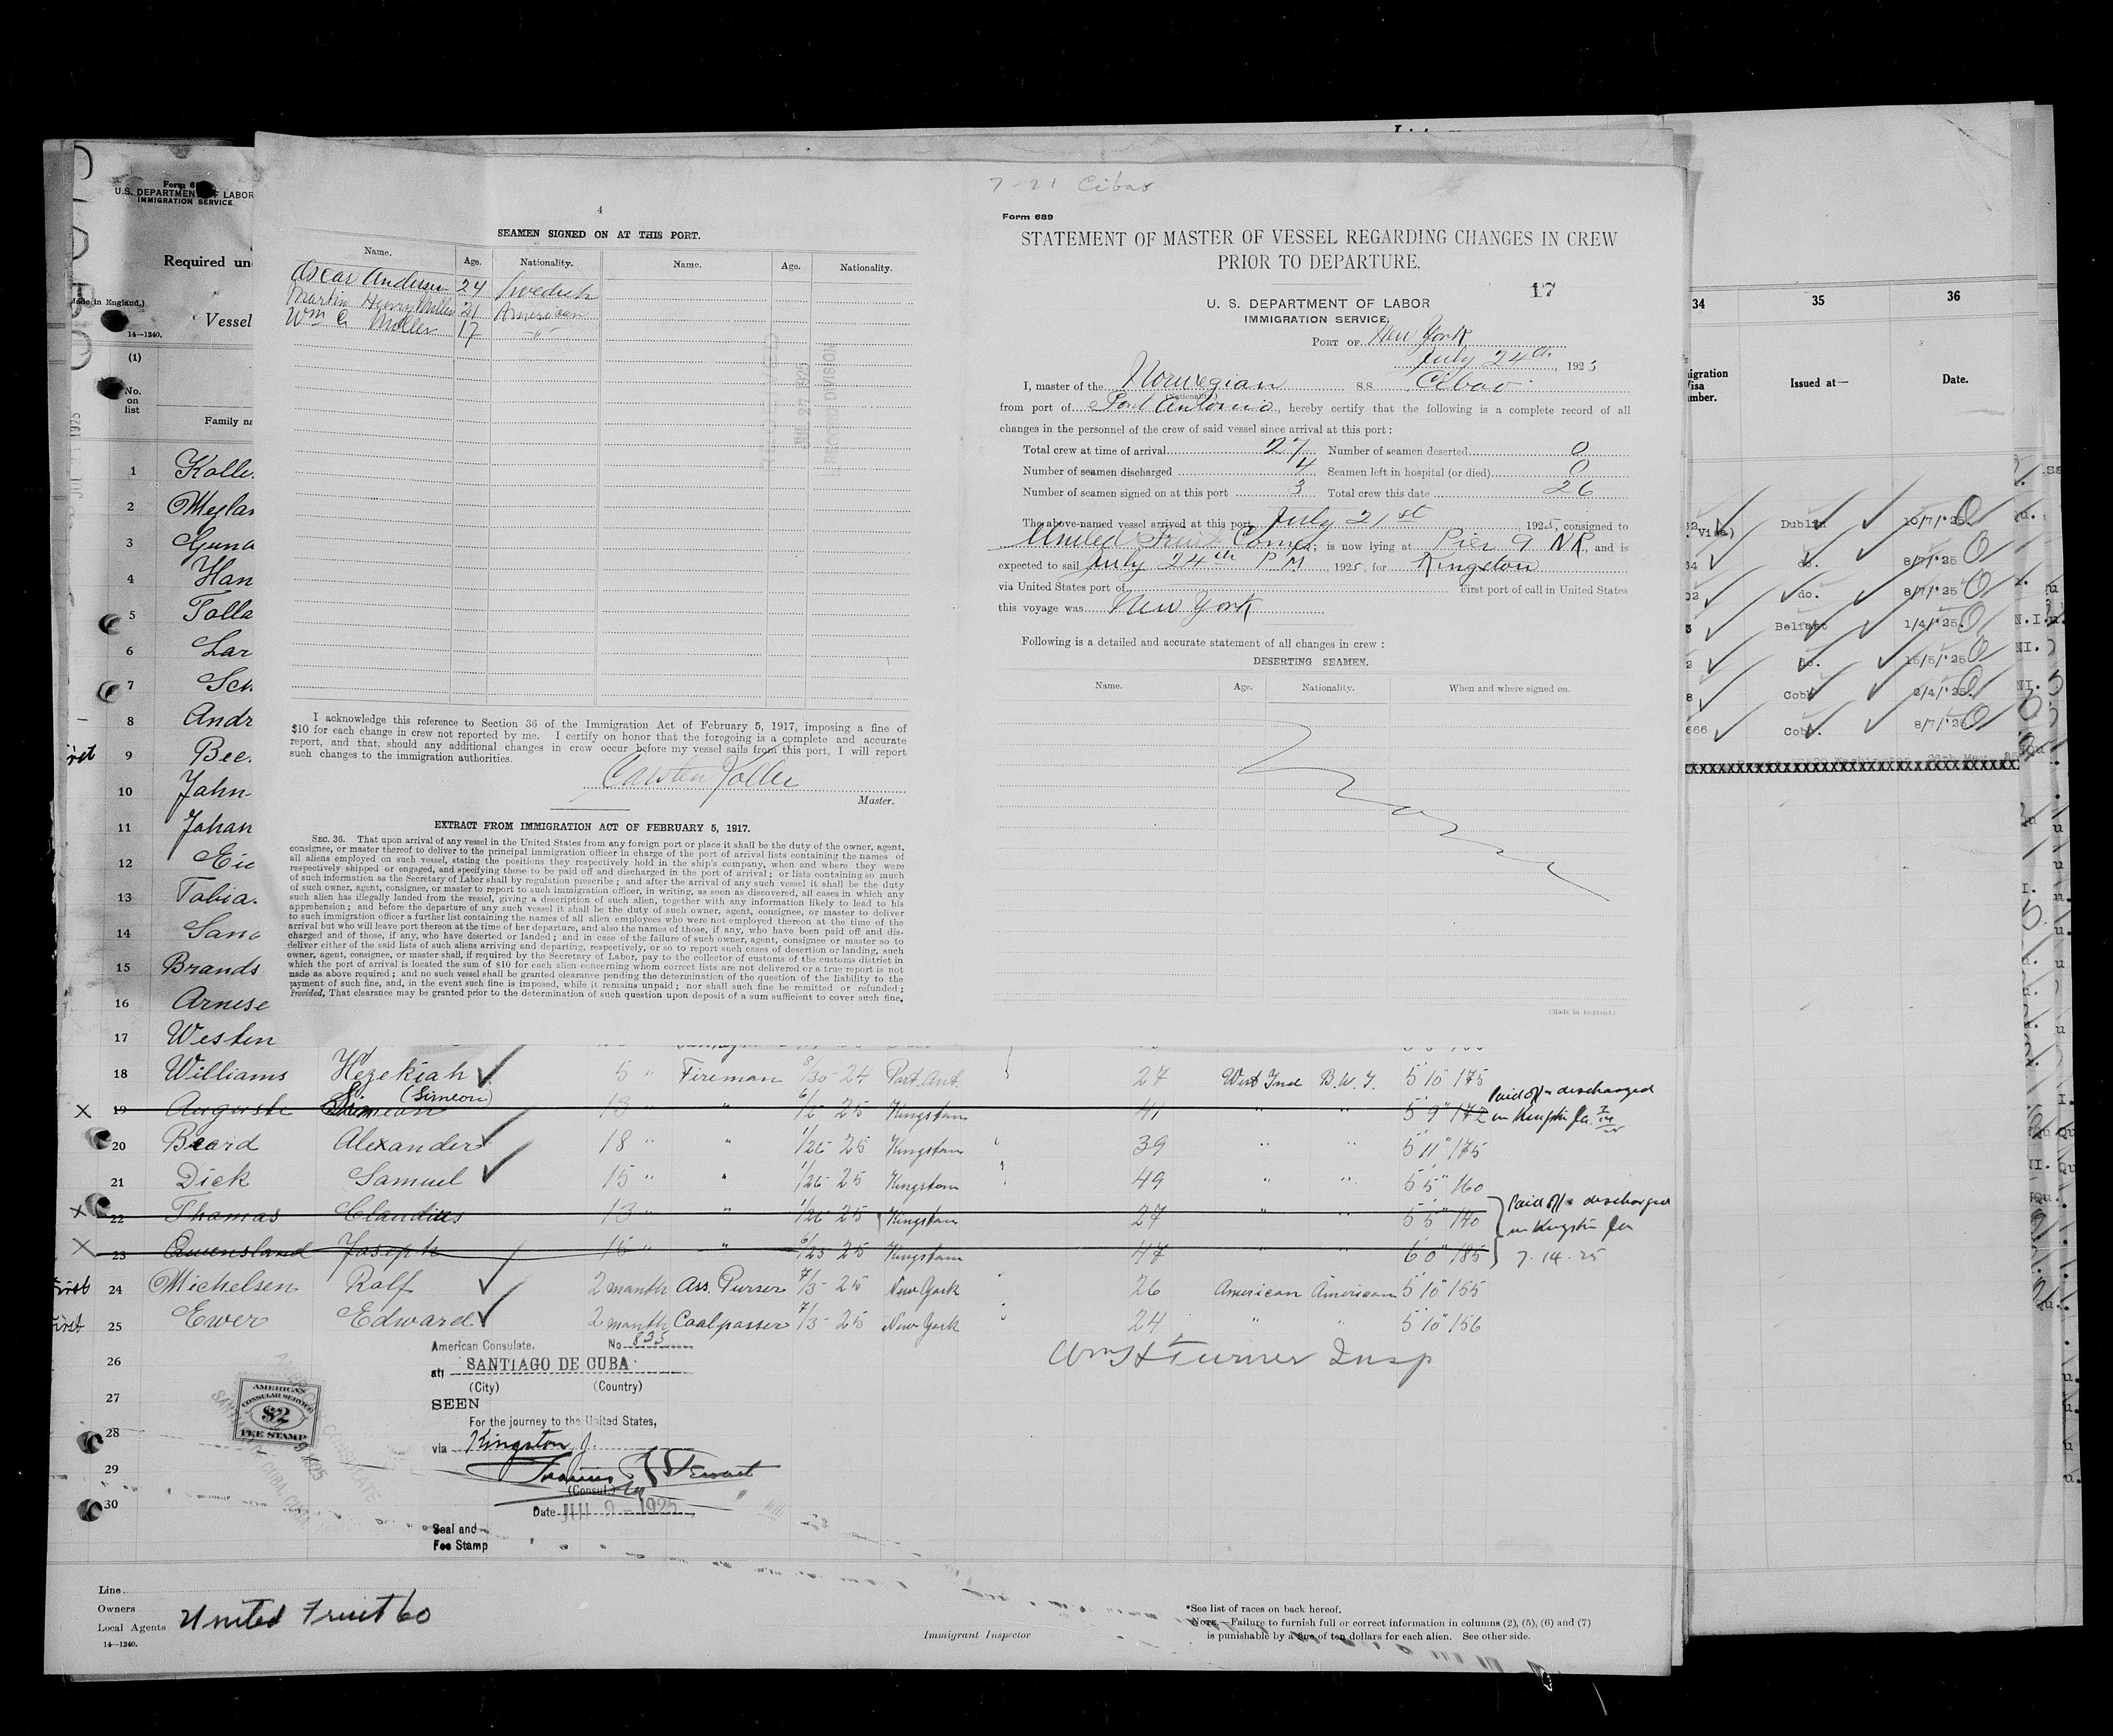 7-21 Cibao
4
SEAMEN SIGNED ON AT THIS PORT.
Name. Age. Nationality. Name. Age. Nationality.
Oscar Andersen 24 Swedish
Martin Henry Miller 21 American
Wm C. Möller 17 -"-
RECEIVED
JUL 27 1925
RECORD DIVISION
I acknowledge this reference to Section 36 of the Immigration Act of February 5, 1917, imposing a fine of
$10 for each change in crew not reported by me. I certify on honor that the foregoing is a complete and accurate
report, and that, should any additional changes in crew occur before my vessel sails from this port, I will report
such changes to the immigration authorities.
Carsten Koller
Master.
EXTRACT FROM IMMIGRATION ACT OF FEBRUARY 5, 1917.
SEC. 36. That upon arrival of any vessel in the United States from any foreign port or place it shall be the duty of the owner, agent,
consignee, or master thereof to deliver to the principal immigration officer in charge of the port of arrival lists containing the names of
all aliens employed on such vessel, stating the positions they respectively hold in the ship's company, when and where they were
respectively shipped or engaged, and specifying those to be paid off and discharged in the port of arrival; or lists containing so much
of such information as the Secretary of Labor shall by regulation prescribe; and after the arrival of any such vessel it shall be the duty
of such owner, agent, consignee, or master to report to such immigration officer, in writing, as soon as discovered, all cases in which any
such alien has illegally landed from the vessel, giving a description of such alien, together with any information likely to lead to his
apprehension; and before the departure of any such vessel it shall be the duty of such owner, agent, consignee, or master to deliver
to such immigration officer a further list containing the names of all alien employees who were not employed thereon at the time of the
arrival but who will leave port thereon at the time of her departure, and also the names of those, if any, who have been paid off and dis-
charged and of those, if any, who have deserted or landed; and in case of the failure of such owner, agent, consignee or master so to
deliver either of the said lists of such aliens arriving and departing, respectively, or so to report such cases of desertion or landing, such
owner, agent, consignee, or master shall, if required by the Secretary of Labor, pay to the collector of customs of the customs district in
which the port of arrival is located the sum of $10 for each alien concerning whom correct lists are not delivered or a true report is not
made as above required; and no such vessel shall be granted clearance pending the determination of the question of the liability to the
payment of such fine, and, in the event such fine is imposed, while it remains unpaid; nor shall such fine be remitted or refunded;
Provided, That clearance may be granted prior to the determination of such question upon deposit of a sum sufficient to cover such fine.
Form 689
STATEMENT OF MASTER OF VESSEL REGARDING CHANGES IN CREW
PRIOR TO DEPARTURE.
17
U. S. DEPARTMENT OF LABOR
IMMIGRATION SERVICE,
PORT OF New York
July 24th, 1925
I, master of the Norwegian S.S. Cibao
(Nationality.)
from port of Port Antonio, hereby certify that the following is a complete record of all
changes in the personnel of the crew of said vessel since arrival at this port:
Total crew at time of arrival 27 Number of seamen deserted 0
Number of seamen discharged 4 Seamen left in hospital (or died) 0
Number of seamen signed on at this port 3 Total crew this date 26
The above-named vessel arrived at this port July 21st, 1925, consigned to
United Fruit Comp.; is now lying at Pier 9 NR, and is
expected to sail July 24th PM, 1925, for Kingston
via United States port of First port of call in United States
this voyage was New York
Following is a detailed and accurate statement of all changes in crew:
DESERTING SEAMEN.
Name. Age. Nationality. When and where signed on.
(Made in England.)
U.S. DEPARTMENT OF LABOR
IMMIGRATION SERVICE
Required un
Made in England.)
Vessel
14—1240.
(1)
No. on list
Family na
1 Kolle
2 Meylan
3 Guna
4 Han
5 Tolla
6 Lar
7 Sch
8 Andr
9 Bee
10 John
11 Johan
12 Eic
13 Tobia
14 Sand
15 Brands
16 Arnese
17 Westen
18 Williams Hezekiah 5 " Fireman 8/30-24 Port Ant. 27 West Ind B.W.I. 5 10 175
19 Auguste Simeon (Simeon) 13 " " 6/6 25 Kingston 41 " " 5 9" 172 Paid off & discharged
in Kingston Ja. 7/14/25
20 Beard Alexander 18 " " 1/26 25 Kingston 39 " " 5 11" 175
21 Dick Samuel 15 " " 1/26 25 Kingston 49 " " 5 5" 160
22 Thomas Claudius 13 " " 1/26 25 Kingston 27 " " 5 5" 140 Paid off & discharged
in Kingston Ja
23 Queensland Joseph 15 " " 6/23 25 Kingston 47 " " 6 0" 185 7.14.25
24 Michelsen Ralf 2 month Ass. Purser 7/3-25 New York 26 American American 5 10" 155
25 Ewer Edward 2 month Coalpasser 7/3-25 New York 24 " " 5 10" 156
26
27
28
29
30
Wm H Turner Insp
American Consulate, No 835
at SANTIAGO DE CUBA
(City) (Country)
SEEN
For the journey to the United States,
via Kingston J.
Francis R Stewart
(Consul)
Date JUL 9-1925
Seal and
Fee Stamp
AMERICAN
CONSULAR SERVICE
$2
FEE STAMP
Line
Owners
Local Agents United Fruit Co
14—1240.
Immigrant Inspector
*See list of races on back hereof.
NOTE.—Failure to furnish full or correct information in columns (2), (5), (6) and (7)
is punishable by a fine of ten dollars for each alien. See other side.
34 35 36
Issued at— Date.
Dublin 10/7/'25
do. 8/7/'25
do. 8/7/'25
Belfast 1/4/'25
do. 15/5/'25
Cobh 2/4/'25
666 Cobh 8/7/'25